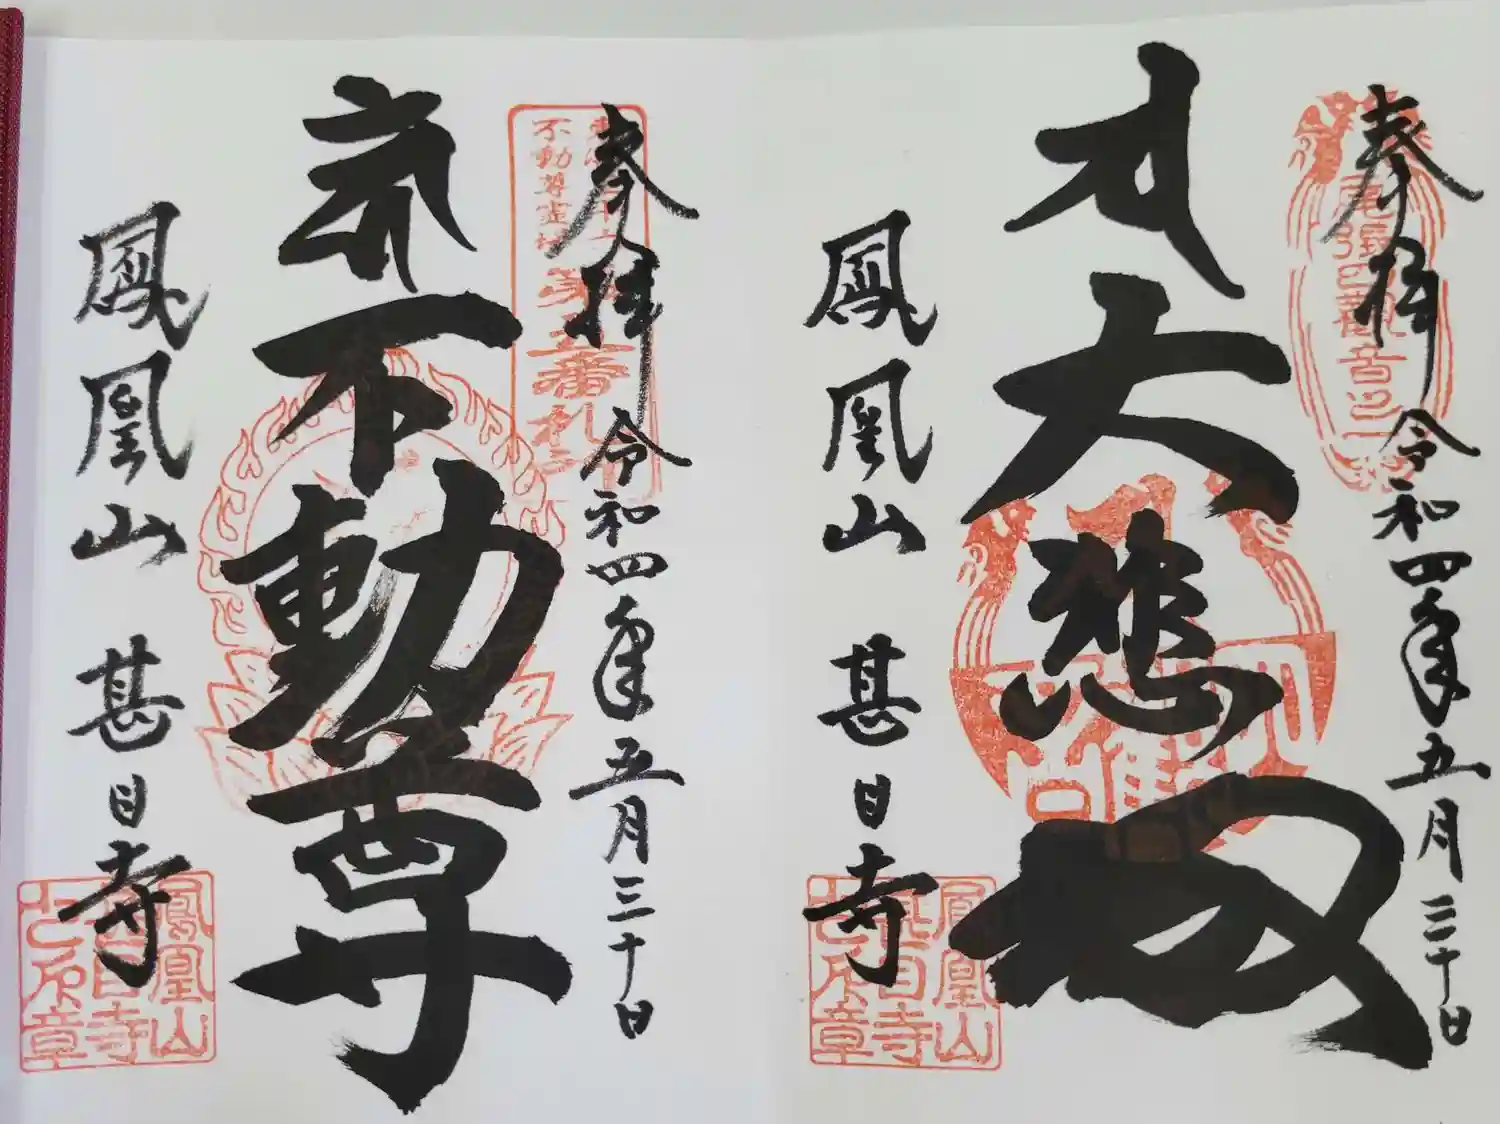 奉拝 令和四年五月三十日
大悲殿
鳳凰山 甚目寺
鳳凰山
甚目寺
之印章
奉拝 令和四年五月三十日
不動尊霊場
第五番札所
不動尊
鳳凰山 甚目寺
鳳凰山
甚目寺
之印章